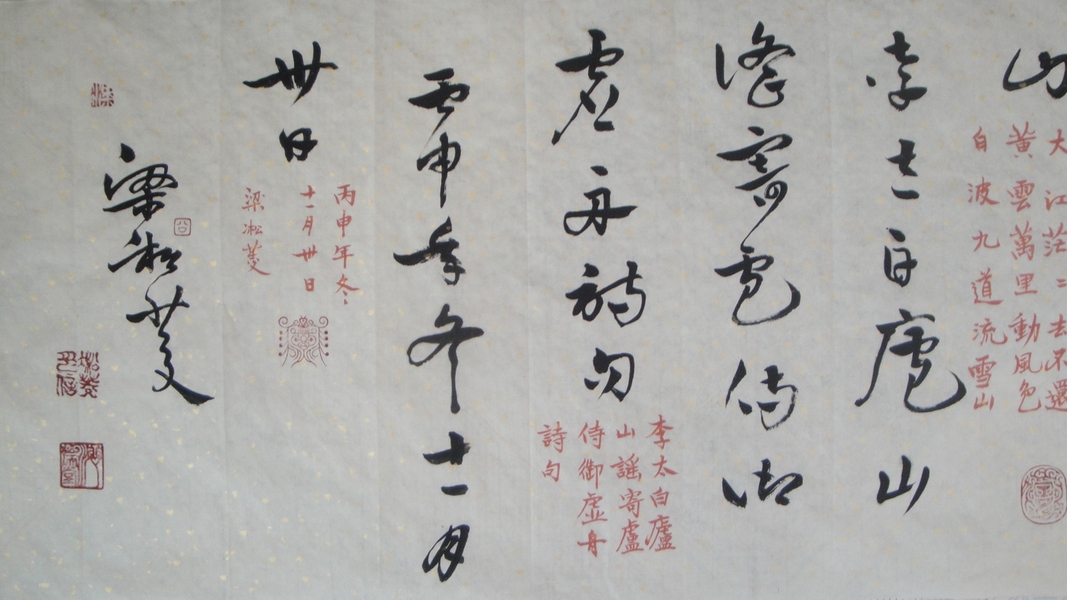 山
大江茫二去不還
黃雲萬里動風色
白波九道流雪山
李太白廬山
謠寄盧侍御
虛舟詩句
李太白廬
山謠寄盧
侍御虛舟
詩句
丙申年冬十一月
卅日
丙申年冬
十一月卅日
梁凇菱
梁凇菱